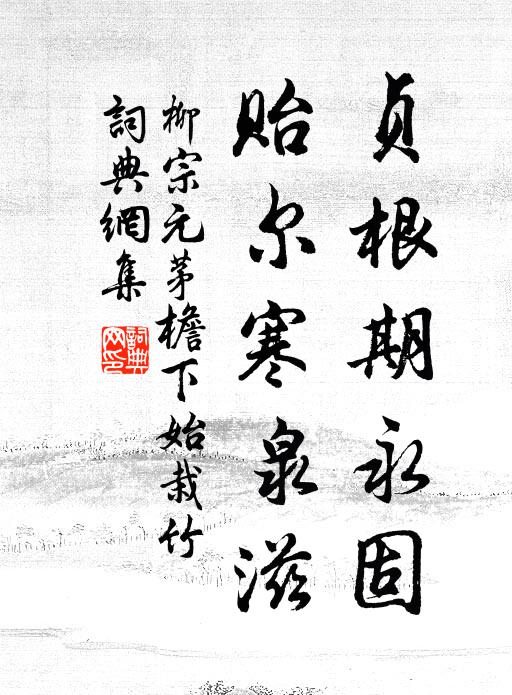 貞根期永固
貽尔寒泉滋
柳宗元茅檐下始栽竹
詞典網集
詞典
网印